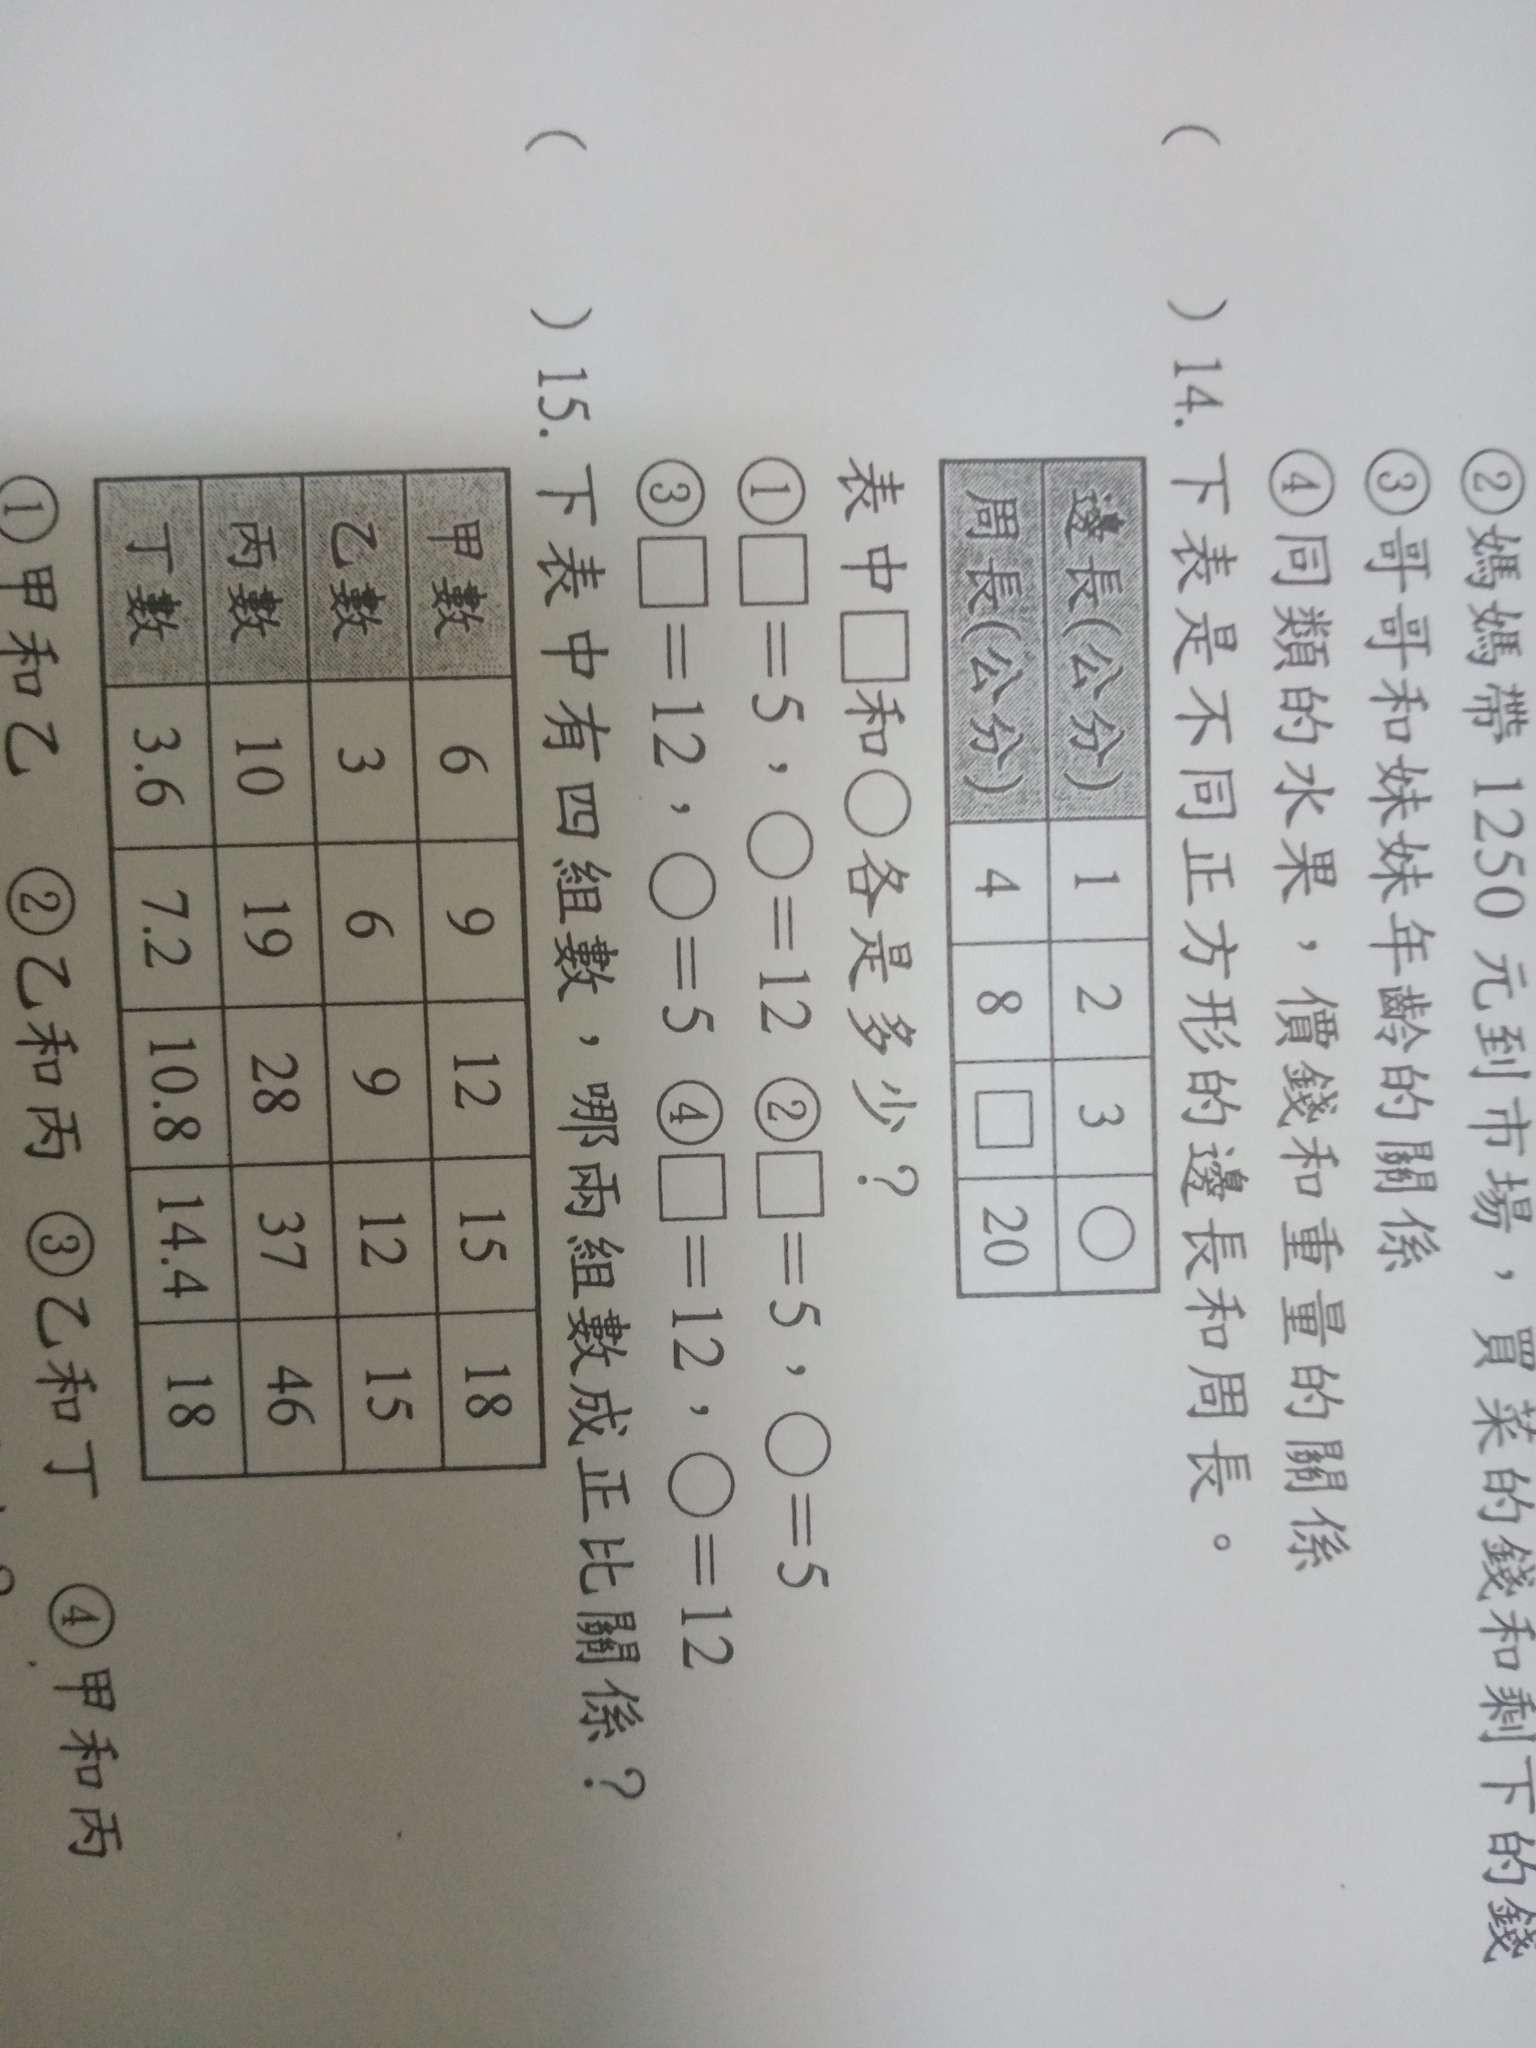 ②媽媽帶 1250 元到市場，買菜的錢和剩下的錢
③哥哥和妹妹年齡的關係
④同類的水果，價錢和重量的關係
(　　)14. 下表是不同正方形的邊長和周長。
邊長(公分) 1 2 3 ○
周長(公分) 4 8 □ 20
表中□和○各是多少？
①□=5，○=12 ②□=5，○=5
③□=12，○=5 ④□=12，○=12
(　　)15. 下表中有四組數，哪兩組數成正比關係？
甲數 6 9 12 15 18
乙數 3 6 9 12 15
丙數 10 19 28 37 46
丁數 3.6 7.2 10.8 14.4 18
①甲和乙 ②乙和丙 ③乙和丁 ④甲和丙